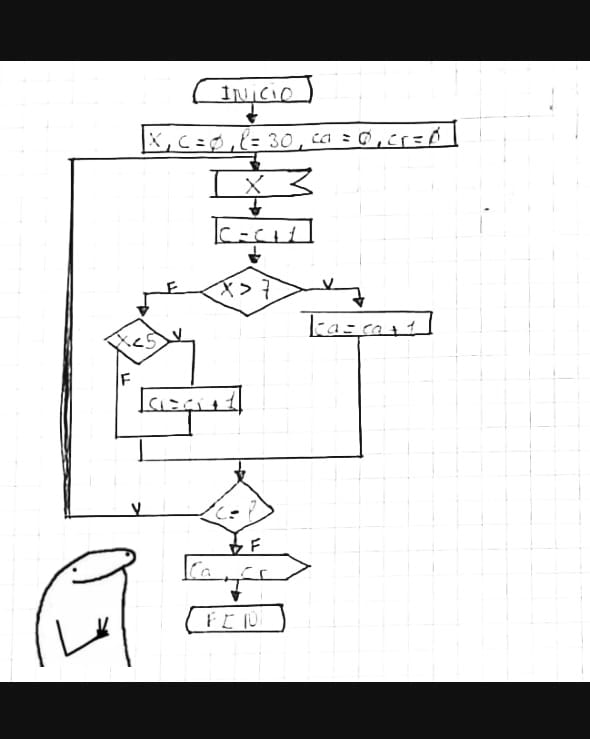 INICIO
X, C=Ø, l=30, ca=Ø, cr=Ø
X
C=C+1
X>7
F
V
X<5
V
ca=ca+1
F
cr=cr+1
C=l
V
F
Ca, cr
FIN